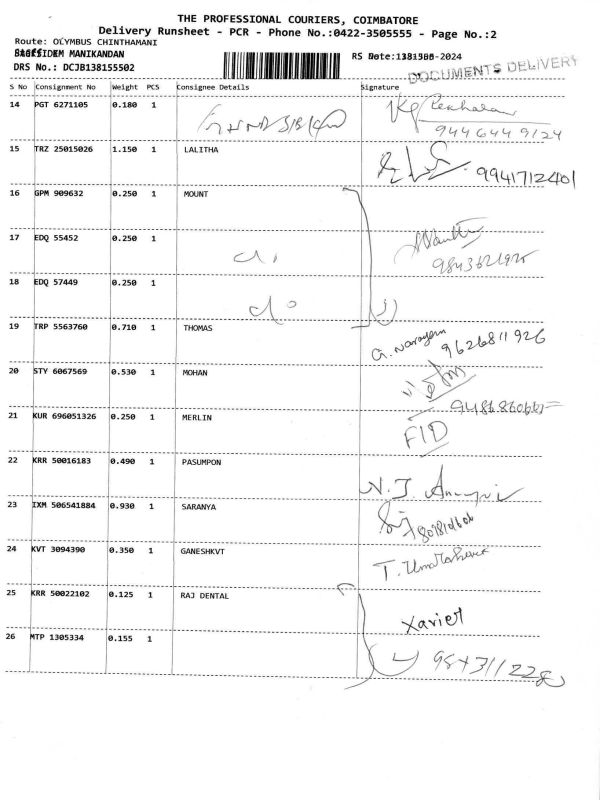 THE PROFESSIONAL COURIERS, COIMBATORE
Delivery Runsheet - PCR - Phone No.:0422-3505555 - Page No.:2
Route: OLYMBUS CHINTHAMANI
MANIKANDAN
DRS No.: DCJB138155502
-2024
DOCUMENTS DELIVERY
S No Consignment No Weight PCS Consignee Details Signature
14 PGT 6271105 0.180 1
15 TRZ 25015026 1.150 1 LALITHA 9941712401
16 GPM 909632 0.250 1 MOUNT
17 EDQ 55452 0.250 1
18 EDQ 57449 0.250 1
19 TRP 5563760 0.710 1 THOMAS G. Narayanan 9626811926
20 STY 6067569 0.530 1 MOHAN
21 KUR 696051326 0.250 1 MERLIN FID
22 KRR 50016183 0.490 1 PASUMPON
23 IXM 506541884 0.930 1 SARANYA
24 KVT 3094390 0.350 1 GANESHKVT
25 KRR 50022102 0.125 1 RAJ DENTAL Xavier
26 MTP 1305334 0.155 1